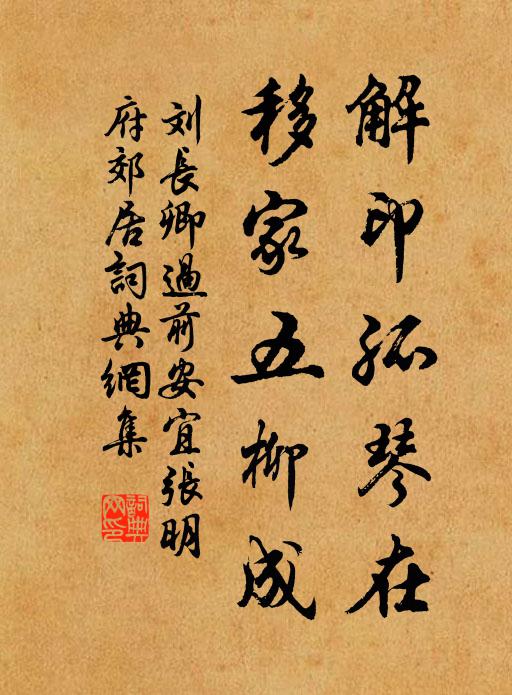 解印孤琴在
移家五柳成
刘長卿過前安宜張明
府郊居詞典網集
詞典
网印